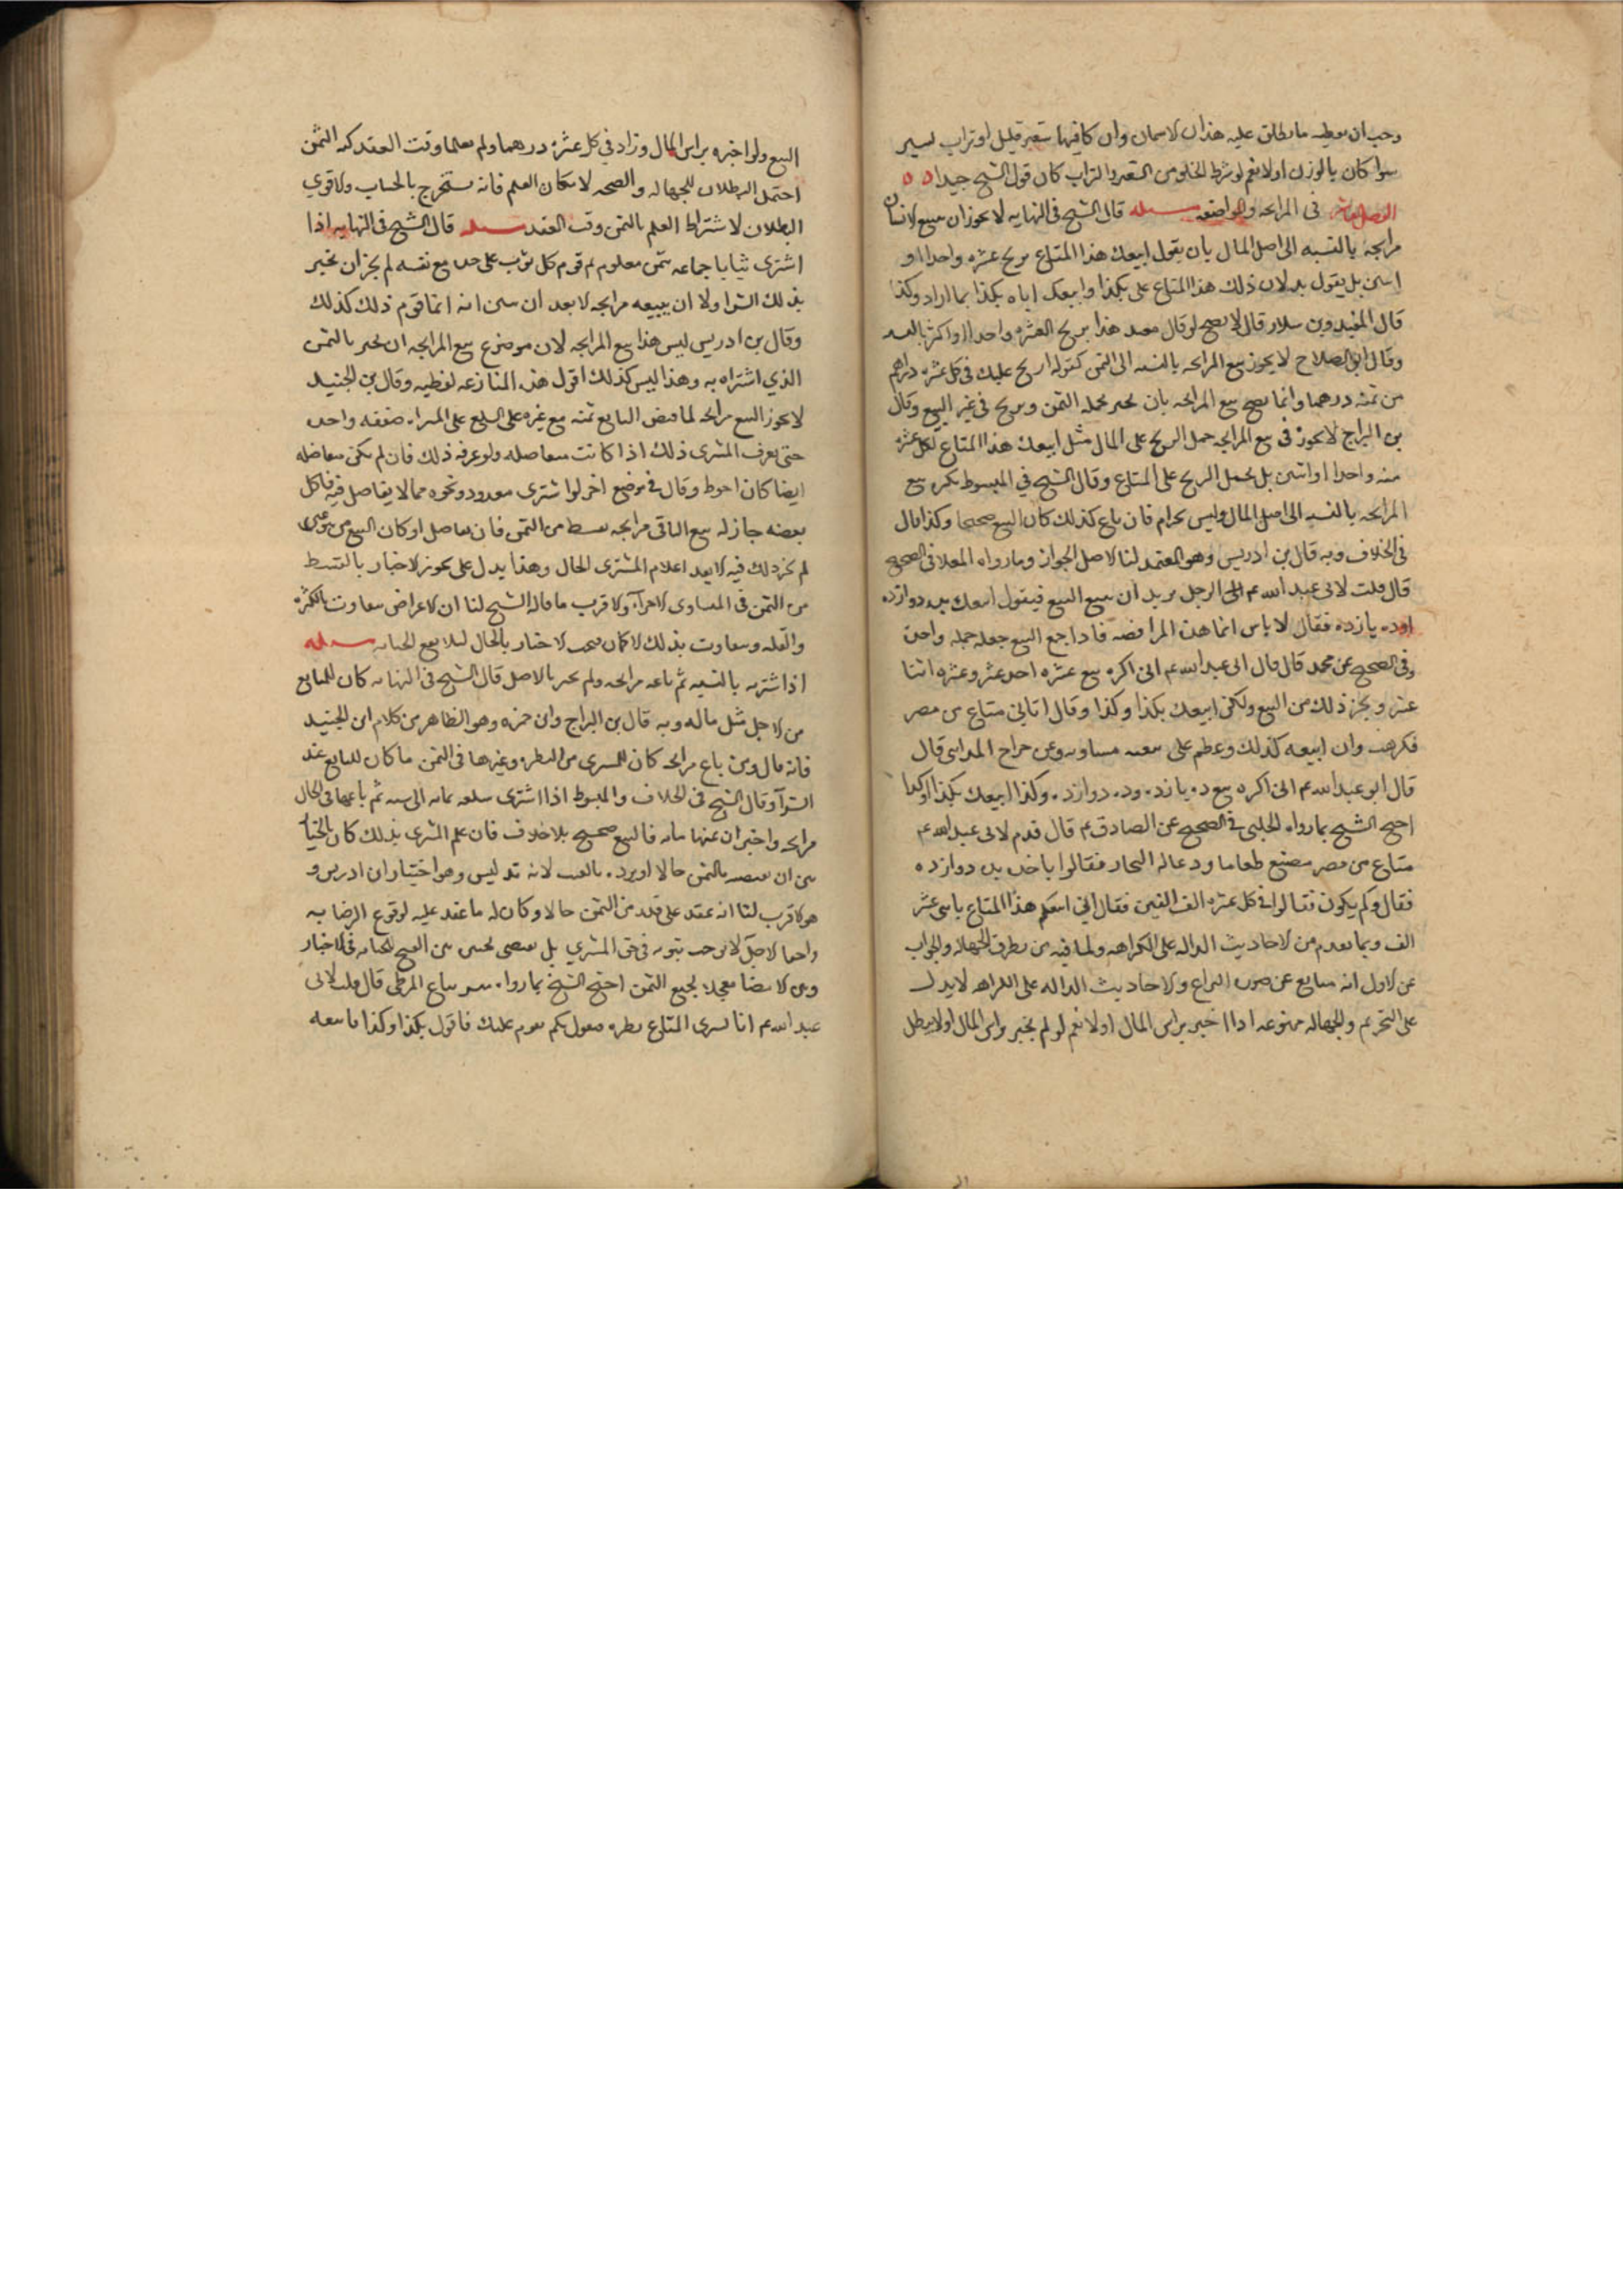 وجب ان يعطيه ما يطلق عليه هذان الاسمان وان كا فيها شعير قليل او تراب يسير
سوا كان بالوزن اولا نعم لو شرط الخلو من الشعير والتراب كان قول الشيخ جيدا
الفصل العاشر في المرابحه والمواضعه مسله قال الشيخ في النهايه لا يجوز ان يبيع الانسان
مرابحة بالنسبه الى اصل المال بان يقول ابيعك هذا المتاع بربح عشره واحدا او
اسن بل يقول بدلا من ذلك هذا المتاع على بكذا وابيعك اياه بكذا بما اراد وكذا
قال المفيد وبن سلار قال لا يصح لو قال بربح العشره واحدا او اكثر بالنسبه
وقال ابو الصلاح لا يجوز بيع المرابحه بالنسبه الى الثمن كقوله اربح عليك في كل عشره دراهم
من ثمنه درهما وانما يصح بيع المرابحه بان يخبر بجمله الثمن ويربح في غير البيع وقال
بن البراج لا يجوز في بيع المرابحه حمل الربح على المال مثل ابيعك هذا المتاع لكل عشره
منه واحدا او اثنين بل يحمل الربح على المتاع وقال الشيخ في المبسوط يكره بيع
المرابحه بالنسبه الى اصل المال وليس بحرام فان باع كذلك كان البيع صحيحا وكذا قال
في الخلاف وبه قال بن ادريس وهو المعتمد لنا الاصل الجواز وما رواه العلا في الصحيح
قال قلت لابي عبد الله ع الرجل يريد ان يبيع البيع فيقول ابيعك بده دوازده
اوده يازده فقال لا باس انما هذه المراوضه فاذا جمع البيع جعله جمله واحدة
وفي الصحيح عن محمد قال قال ابى عبد الله ع انى اكره بيع عشره احد عشر وعشره اثنا
عشر ونحو ذلك من البيع ولكنى ابيعك بكذا وكذا وقال اتاني متاع من مصر
فكرهت وان ابيعه كذلك وعظم على فبعته مساومه وعن جراح المدايني قال
قال ابو عبد الله ع انى اكره بيع ده يازده وده دوازده ولكنى ابيعك بكذا او كذا
احتج الشيخ بما رواه الحلبي في الصحيح عن الصادق ع قال قدم لابي عبد الله ع
متاع من مصر فصنع طعاما ودعا له التجار فقالوا ناخذه بده دوازده
فقال وكم يكون فقالوا في كل عشره الف الفين فقال انى ابيعكم هذا المتاع باثنى عشر
الف وبما تقدم من الاحاديث الداله على الكراهه ولما فيه من تطرق الجهاله والجواب
عن الاول انه صانع عن صوره النزاع والاحاديث الداله على الكراهه لا يدل
على التحريم والجهاله ممنوعه اذا اخبر براس المال اولا نعم لو لم يخبر براس المال اولا بطل
البيع ولو اخبره براس المال وزاد في كل عشره درهما ولم يعلما وقت العقد كم الثمن
احتمل البطلان للجهاله والصحه لامكان العلم فانه يستخرج بالحساب والاقوي
البطلان لاشتراط العلم بالثمن وقت العقد مسله قال الشيخ في النهايه اذا
اشترى ثيابا جماعه بثمن معلوم لم قوم كل ثوب على حده مع نفسه لم يجز ان يخبر
بذلك الشرا ولا ان يبيعه مرابحه الا بعد ان يبين انه انما قوم ذلك كذلك
وقال بن ادريس ليس هذا بيع المرابحه لان موضوع بيع المرابحه ان يخبر بالثمن
الذي اشتراه به وهذا ليس كذلك اقول هذه المنازعه لفظيه وقال بن الجنيد
لا يجوز البيع مرابحه لما قبض البايع ثمنه مع غيره على البايع على المشتراه صفقه واحده
حتى يعرف المشترى ذلك اذا كانت متفاضله ولو عرفه ذلك فان لم يكن متفاضله
ايضا كان احوط وقال في موضع اخر لو اشترى معدود ونحوه مما لا يتفاضل فيه فاكل
بعضه جاز له بيع الباقي مرابحه بقسط من الثمن فان تفاضل او كان البيع من
لم يجز ذلك فيه الا بعد اعلام المشترى الحال وهذا يدل على تجويز الاخبار بالتقسيط
من الثمن في المتساوى الاجزاء والاقرب ما قاله الشيخ لنا ان الاغراض يتفاوت بالكثره
والقله ويتفاوت بذلك الاثمان فيجب الاخبار بالحال لئلا يقع الخيانه مسله
اذا اشتريه بالنسيه ثم باعه مرابحه ولم يخبر بالاصل قال الشيخ في النهايه كان للمبايع
من الاجل مثل ماله وبه قال بن البراج وابن حمزه وهو الظاهر من كلام ابن الجنيد
فانه قال ومن باع مرابحه كان للمشترى من النظره وغيرها في الثمن ما كان للبايع عند
الشرآ وقال الشيخ في الخلاف والمبسوط اذا اشترى سلعه بمايه الى سنه ثم باعها في الحال
مرابحه واخبر ان ثمنها مايه فالبيع صحيح بلا خلاف فان علم المشترى بذلك كان بالخيا
بين ان يقبضه بالثمن حالا او يرده بالعيب لانه تدليس وهو اختيار ابن ادريس و
هو الاقرب لنا انه عقد على قدر من الثمن حالا وكان له ما عقد عليه لوقوع الرضا به
واخفا الاجل لا يوجب ثبوته في حق المشتري بل يقتضى تخيير بين الفسخ للخيانه في الاخبار
وبين الامضا معجلا بجميع الثمن احتج الشيخ بما رواه ميسر بياع الزطى قال قلت لابى
عبد الله ع انا نشترى المتاع بنظره فيقول بكم تقوم عليك فاقول بكذا وكذا فابيعه